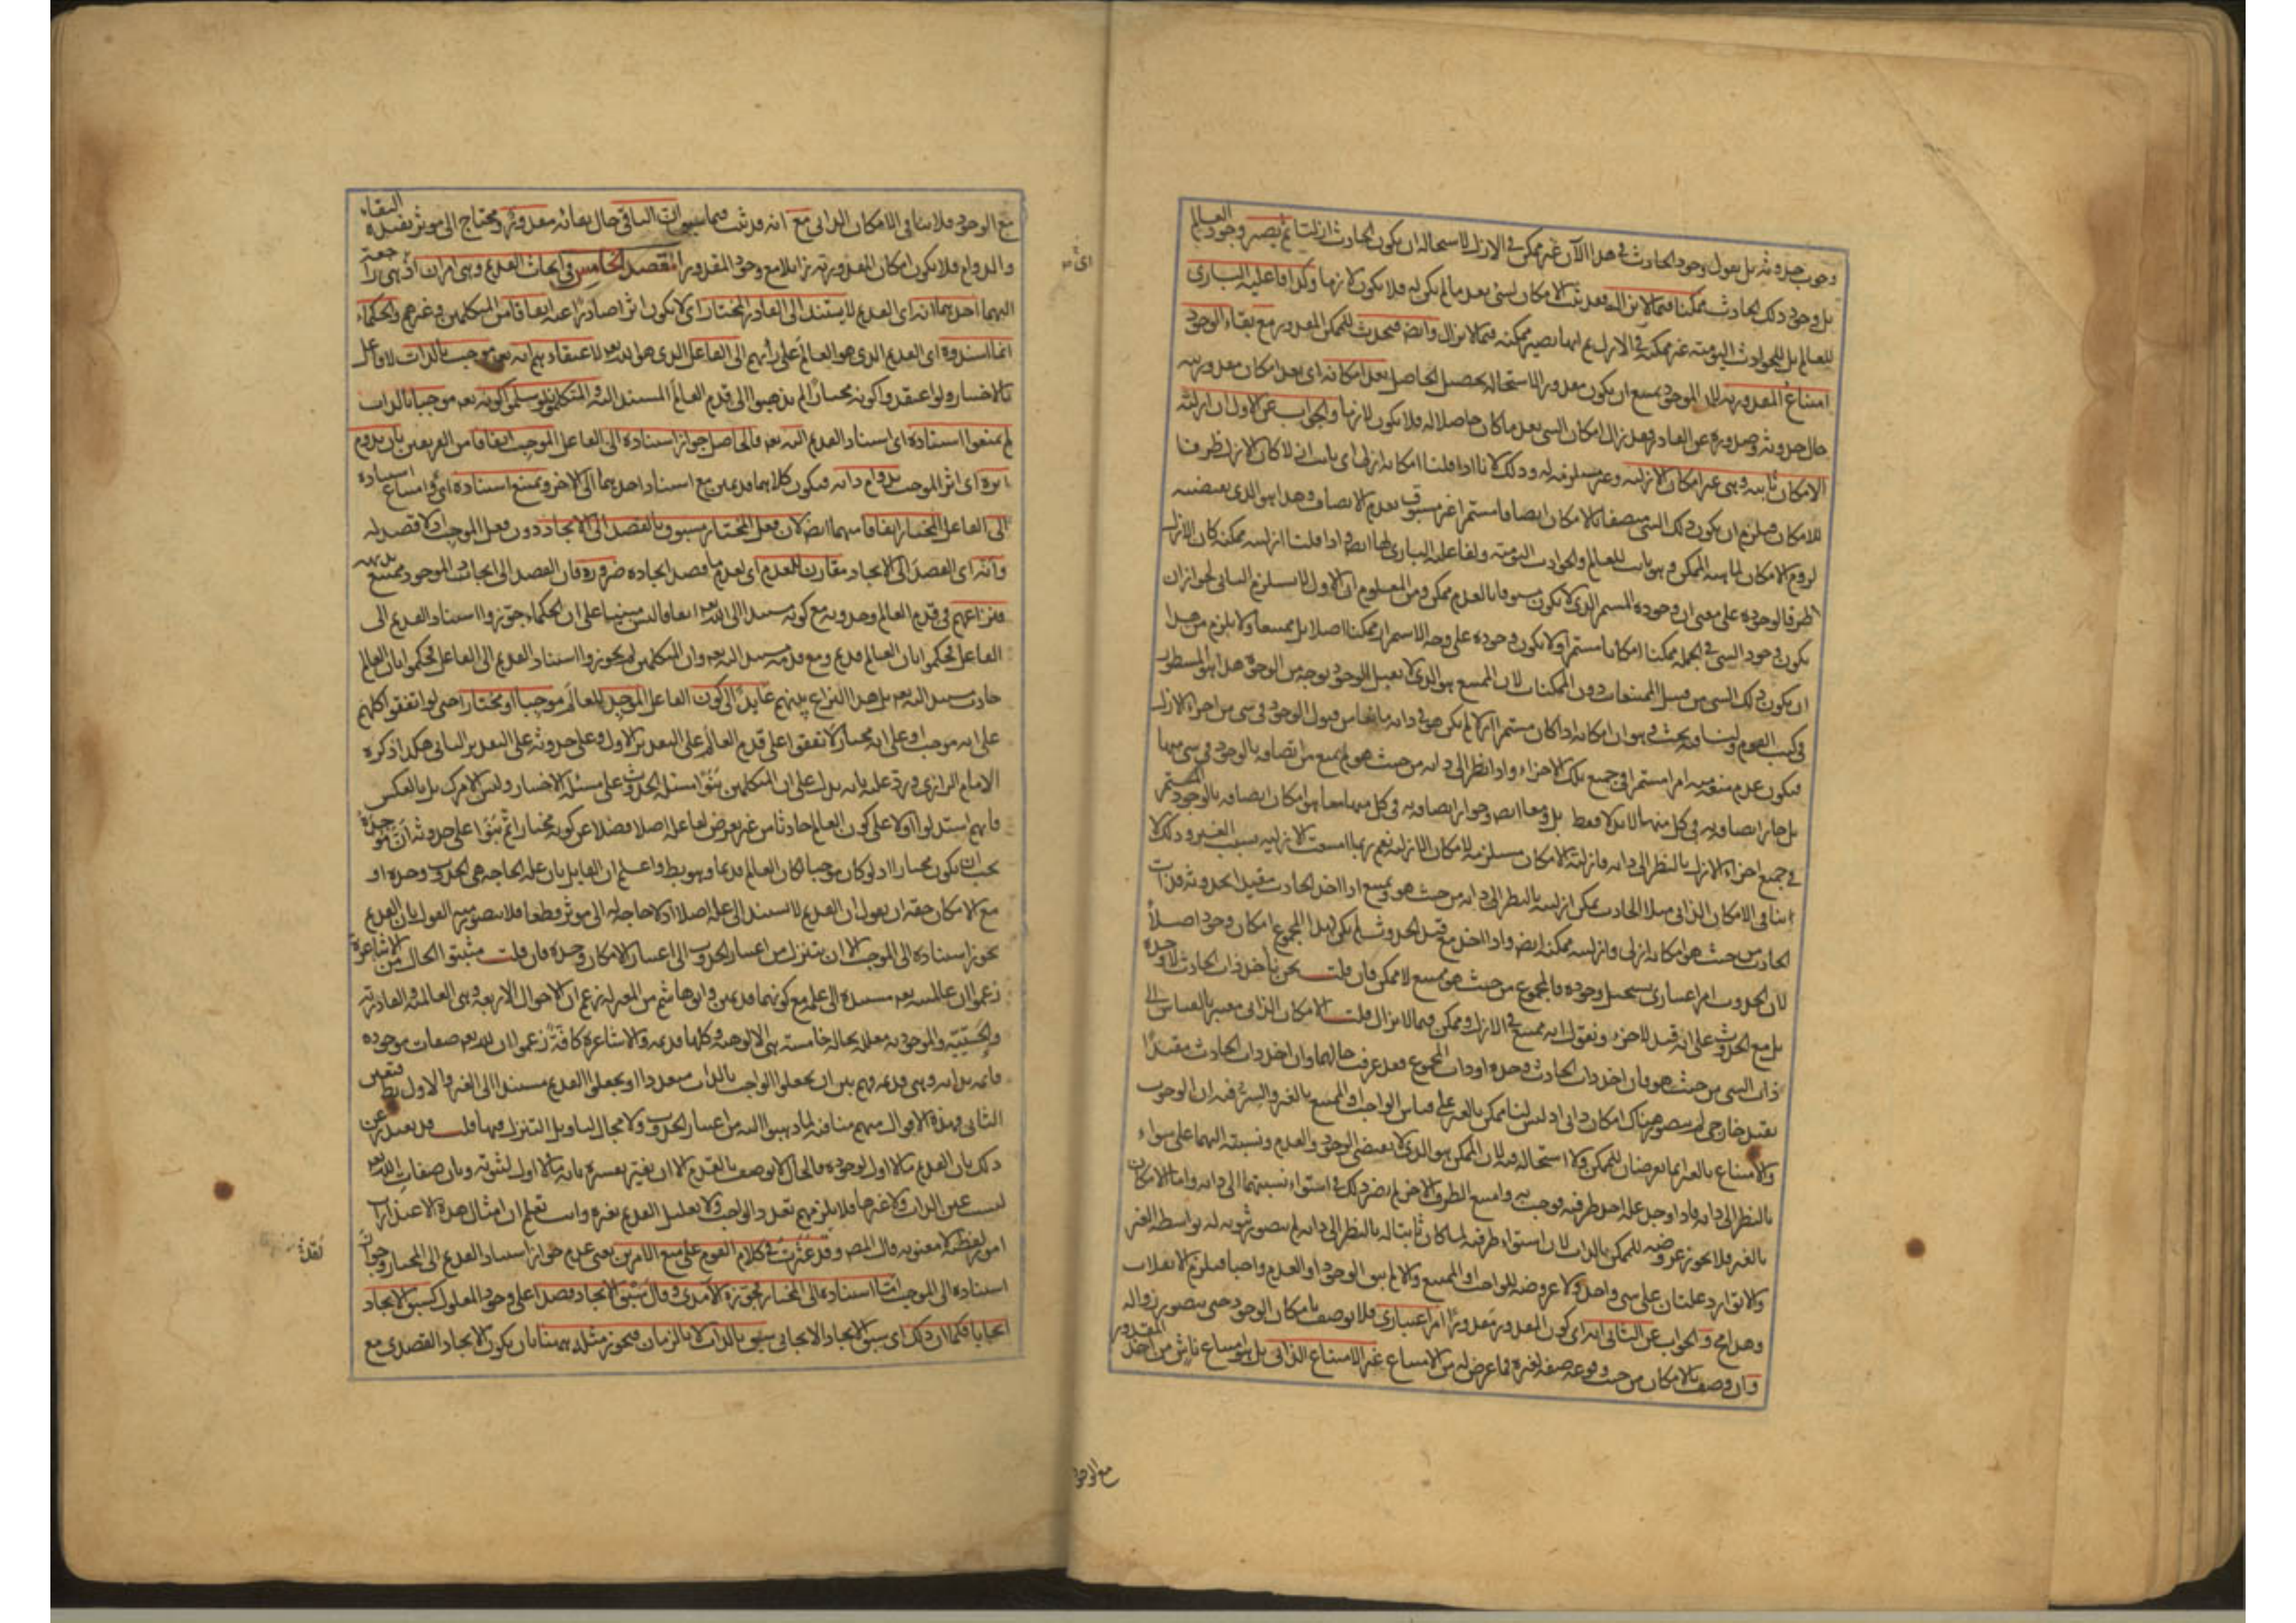 وجوب حدوثه بل نقول وجود الحادث في هذا الآن غير ممكن في الازل لاستحالة ان يكون الحادث ازليا ثم يصير وجود العالم
بل وجود ذلك الحادث ممكنا فيما لا يزال فقد ثبت الامكان لشئ بعد ما لم يكن له فلا يكون لازما وكذا فاعلية البارى
للعالم بل للحوادث اليومية غير ممكنة في الازل ثم انها تصير ممكنة فيما لا يزال وايض فيحدث للممكن المقدور مع بقاء الوجود
امتناع المقدورية لان الموجود يمتنع ان يكون مقدورا لاستحالة تحصيل الحاصل بعد امكانه اى بعد امكان مقدوريته
حال حدوثه وصدوره عن القادر فقد زال امكان الشئ بعد ما كان حاصلا له فلا يكون لازما والجواب عن الاول ان ازلية
الامكان ثابتة وهي غير امكان الازلية وغير مستلزمة له وذلك لانا اذا قلنا امكانه ازلي اى ثابت ازلا كان الازل ظرفا
للامكان فيلزم ان يكون ذلك الشئ متصفا بالامكان اتصافا مستمرا غير مسبوق بعدم الاتصاف وهذا هو الذى يقتضيه
لزوم الامكان لماهية الممكن وهو ثابت للعالم والحوادث اليومية ولفاعلية البارى لها ايض واذا قلنا ازليته ممكنة كان الازل
ظرفا لوجوده على معنى ان وجوده المستمر الذى لا يكون مسبوقا بالعدم ممكن ومن المعلوم ان الاول لا يستلزم الثاني لجواز ان
يكون وجود الشئ في الجملة ممكنا امكانا مستمرا ولا يكون وجوده على وجه الاستمرار ممكنا اصلا بل ممتنعا ولا يلزم من هذا
ان يكون ذلك الشئ من قبيل الممتنعات دون الممكنات لان الممتنع هو الذى لا يقبل الوجود بوجه من الوجوه هذا هو المسطور
في كتب القوم ولنا فيه بحث وهو ان امكانه اذا كان مستمرا ازلا لم يكن هو في ذاته مانعا من قبول الوجود في شئ من اجزاء الازل
فيكون عدم منعه منه امرا مستمرا في جميع تلك الاجزاء واذا نظر الى ذاته من حيث هو لم يمنع من اتصافه بالوجود في شئ منها
بل جاز اتصافه به في كل منها لا بدلا فقط بل ومعا ايض وجواز اتصافه به في كل منها معا هو امكان اتصافه بالوجود المستمر
في جميع اجزاء الازل بالنظر الى ذاته فازلية الامكان مستلزمة لامكان الازلية نعم ربما امتنعت الازلية بسبب الغير وذلك لا
ينافي الامكان الذاتي مثلا الحادث يمكن ازليته بالنظر الى ذاته من حيث هو ويمتنع اذا اخذ الحادث مقيد الحدوثه فذات
الحادث من حيث هو امكانه ازلي وازليته ممكنة ايض واذا اخذ مع قيد الحدوث لم يكن لهذا المجموع امكان وجود اصلا
لان الحدوث امر اعتبارى يستحيل وجوده فالمجموع من حيث هو ممتنع لا ممكن فان قلت نحن نأخذ ذات الحادث لا وحده
بل مع الحدوث على انه قيد لا جزء ونقول انه ممتنع في الازل وممكن فيما لا يزال قلت الامكان الذاتي معتبر بالقياس الى
ذات الشئ من حيث هو فان اخذ ذات الحادث وحده او ذات المجموع فقد عرفت حالهما وان اخذ ذات الحادث مقيدا
بقيد خارجي لم يتصور هناك امكان ذاتي اذ ليس لنا ممكن بالغير على قياس الواجب او الممتنع بالغير والسر فيه ان الوجوب
والامتناع بالغير انما يعرضان للممكن ولا استحالة فيه لان الممكن هو الذى لا يقتضي الوجود والعدم ونسبته اليهما على سواء
بالنظر الى ذاته فاذا وجد علة احد طرفيه فوجب به وامتنع الطرف الاخر لم يضر ذلك في استواء نسبتهما الى ذاته واما الامكان
بالغير فلا يجوز عروضه للممكن بالذات لان استواء طرفيه لما كان ثابتا له بالنظر الى ذاته لم يتصور ثبوته له بواسطة الغير
والا توارد علتان على شئ واحد ولا عروضه للواجب او الممتنع والا لم يبق الوجود او العدم واجبا فيلزم الانقلاب
وهذا مح والجواب عن الثاني انه اى كون المقدور مقدورا امر اعتبارى فلا يوصف بامكان الوجود حتى يتصور زواله
وان وصف بالامكان من حيث وقوعه صفة لغيره فما عرض له من الامتناع غير الامتناع الذاتي بل هو امتناع ناش من اخذ المقدور
مع الوجو
مع الوجود فلا ينافي الامكان الذاتي مع انه قد ثبت فيما سبق ان الباقي حال بقائه مقدور ومحتاج الى موثر يفيده البقاء
والدوام فلا يكون امكان المقدورية زائلا مع وجود المقدور المقصد الخامس في ابحاث القديم وهي امران اى هي راجعة
اليهما احدهما انه اى القديم لا يستند الى القادر المختار اى لا يكون اثرا صادرا عنه اتفاقا من المتكلمين وغيرهم والحكماء
انما اسندوه اى القديم الذى هو العالم على رأيهم الى الفاعل الذى هو الله تعه لاعتقادهم انه تعه موجب بالذات لا فاعل
بالاختيار ولو اعتقدوا كونه مختارا لم يذهبوا الى قدم العالم المستند اليه والمتكلمون لو سلموا كونه تعه موجبا بالذات
لم يمنعوا استناده اى استناد القديم اليه تعه فالحاصل جواز استناده الى الفاعل الموجب اتفاقا من الفريقين بان يدوم
اثره اى اثر الموجب بدوام ذاته فيكون كلاهما قديمين مع استناد احدهما الى الآخر ويمتنع استناده اى وامتناع استناده
الى الفاعل المختار اتفاقا منهما ايض لان فعل المختار مسبوق بالقصد الى الايجاد دون فعل الموجب اذ لا قصد له
وانه اى القصد الى الايجاد مقارن للعدم اى لعدم ما قصد ايجاده ضرورة فان القصد الى ايجاد الموجود ممتنع بديهة
فنزاعهم في قدم العالم وحدوثه مع كونه مستندا الى الله تعه اتفاقا ليس مبنيا على ان الحكماء جوزوا استناد القديم الى
الفاعل فحكموا بان العالم قديم ومع قدمه مستند اليه تعه وان المتكلمين لم يجوزوا استناد القديم الى الفاعل فحكموا بان العالم
حادث مستند اليه تعه بل هذا النزاع بينهم عائد الى كون الفاعل الموجد للعالم موجبا او مختارا حتى لو اتفقوا كلهم
على انه موجب او على انه مختار لاتفقوا على قدم العالم على التقدير الاول وعلى حدوثه على التقدير الثاني هكذا ذكره
الامام الرازى ورد عليه بانه يدل على ان المتكلمين بنوا مسئلة الحدوث على مسئلة الاختيار وليس الامر كك بل بالعكس
فانهم استدلوا اولا على كون العالم حادثا من غير تعرض لفاعله اصلا فضلا عن كونه مختارا ثم بنوا على حدوثه ان موجده
يجب ان يكون مختارا اذ لو كان موجبا لكان العالم قديما وهو بط واعلم ان القايل بان علة الحاجة هي الحدوث وحده او
مع الامكان حقه ان يقول ان القديم لا يستند الى علة اصلا اذ لا حاجة له الى موثر قطعا فلا يتصور منه القول بان القديم
يجوز استناده الى الموجب الا ان يتنزل من اعتبار الحدوث الى اعتبار الامكان وحده فان قلت مثبتو الحال من الاشاعرة
زعموا ان عالميته تعه مستندة الى علمه مع كونهما قديمين وابو هاشم من المعتزلة زعم ان الاحوال الاربعة وهي العالمية والقادرية
والحييية والموجودية معللة بحالة خامسة هي الالوهية وكلها قديمة والاشاعرة كافة زعموا ان لله تعه صفات موجودة
قائمة بذاته وهي قديمة فهم بين ان يجعلوا الواجب بالذات متعددا او يجعلوا القديم مستندا الى الغير والاول بط فتعين
الثاني وهذه الاقوال منهم منافية لما ذهبوا اليه من اعتبار الحدوث ولا مجال لتاويل التنزل فيها قلت قد يعتذر عن
ذلك بان القديم ما لا اول لوجوده فالحال لا يوصف بالقدم الا ان يغير تفسيره بانه ما لا اول لثبوته وبان صفات الله تعه
ليست عين الذات ولا غيرها فلا يلزمهم تعدد الواجب ولا تعليل القديم بغيره وانت تعلم ان امثال هذه الاعتذارات
امور لفظية لا معنوية قال المص وقد عثرت في كلام القوم على منع الامرين يعنى عدم جواز استناد القديم الى المختار وجواز
استناده الى الموجب اما استناده الى المختار فجوزه الامدى وقال سبق الايجاد قصدا على وجود المعلول كسبق الايجاد
ايجابا فكما ان ذلك اى سبق الايجاد الايجابي سبق بالذات لا بالزمان فيجوز مثله ههنا بان يكون الايجاد القصدى مع